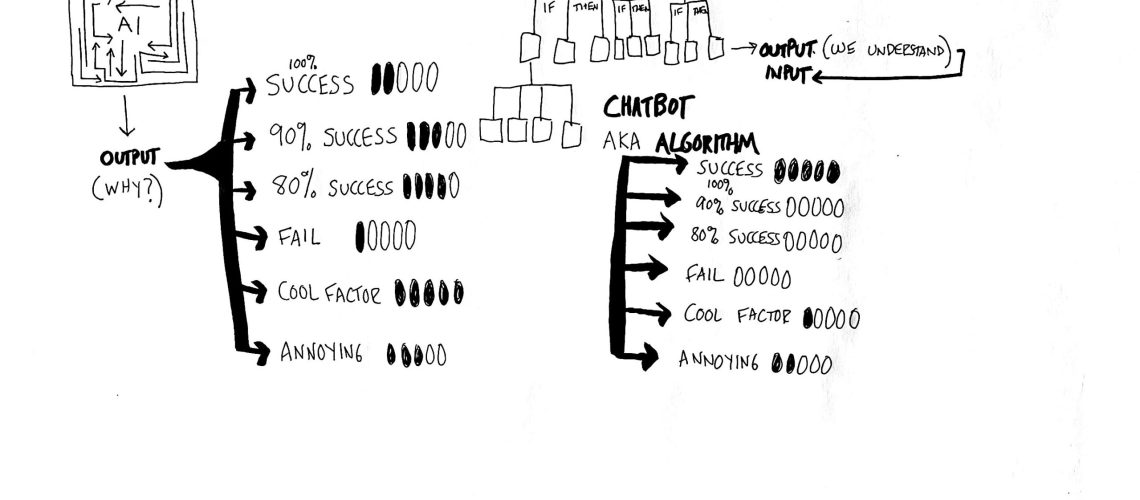 AI
OUTPUT
(WHY?)
100%
SUCCESS
90% SUCCESS
80% SUCCESS
FAIL
COOL FACTOR
ANNOYING
IF THEN IF THEN IF THEN
OUTPUT (WE UNDERSTAND)
INPUT
CHATBOT
AKA ALGORITHM
SUCCESS
100%
90% SUCCESS
80% SUCCESS
FAIL
COOL FACTOR
ANNOYING